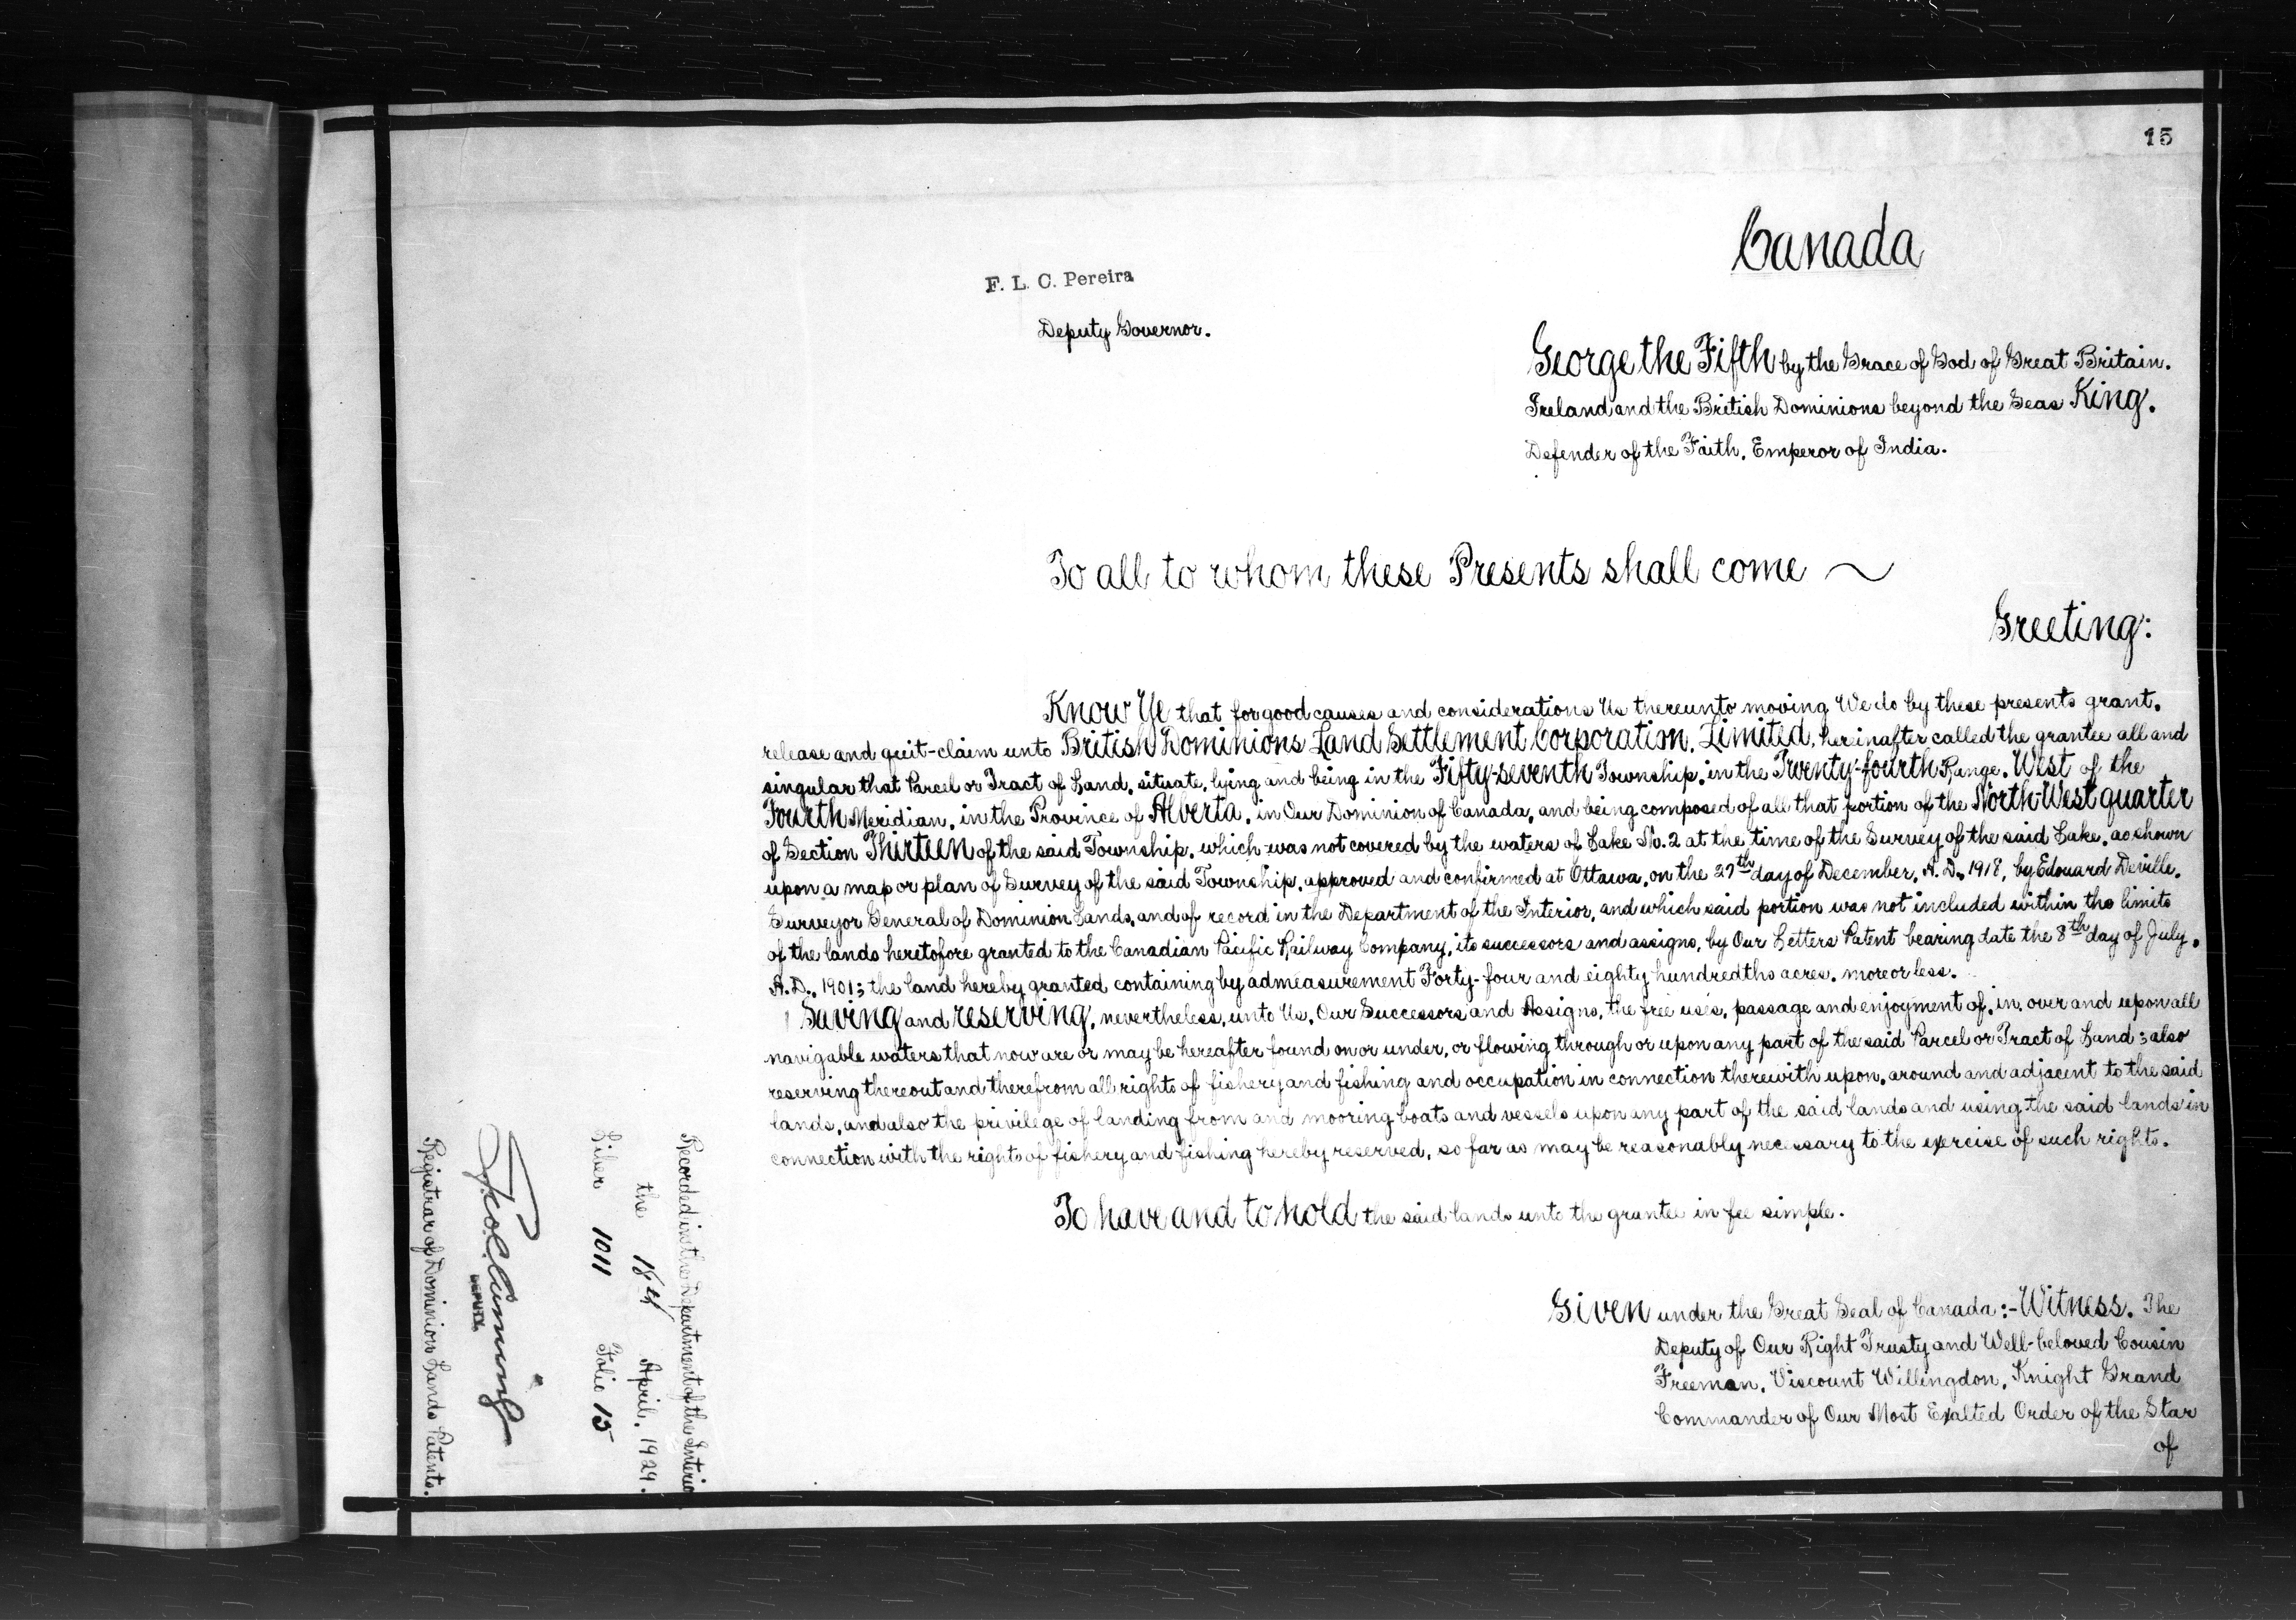 15
Canada
F. L. C. Pereira
Deputy Governor.
George the Fifth by the Grace of God of Great Britain.
Ireland and the British Dominions beyond the Seas King.
Defender of the Faith, Emperor of India.
To all to whom these Presents shall come ~
Greeting:
Know Ye that for good causes and considerations Us thereunto moving We do by these presents grant,
release and quit-claim unto British Dominions Land Settlement Corporation, Limited, hereinafter called the grantee all and
singular that Parcel or Tract of Land, situate, lying and being in the Fifty-seventh Township, in the Twenty-fourth Range, West of the
Fourth Meridian, in the Province of Alberta, in Our Dominion of Canada, and being composed of all that portion of the North West quarter
of Section Thirteen of the said Township, which was not covered by the waters of Lake No. 2 at the time of the Survey of the said Lake, as shown
upon a map or plan of Survey of the said Township, approved and confirmed at Ottawa, on the 27th day of December, A.D. 1918, by Edouard Deville,
Surveyor General of Dominion Lands, and of record in the Department of the Interior, and which said portion was not included within the limits
of the lands heretofore granted to the Canadian Pacific Railway Company, its successors and assigns, by Our Letters Patent bearing date the 8th day of July,
A.D. 1901; the land hereby granted containing by admeasurement Forty-four and eighty hundredths acres, more or less.
Saving and reserving, nevertheless, unto Us, Our Successors and Assigns, the free uses, passage and enjoyment of, in, over and upon all
navigable waters that now are or may be hereafter found on or under, or flowing through or upon any part of the said Parcel or Tract of Land; also
reserving thereout and therefrom all rights of fishery and fishing and occupation in connection therewith upon, around and adjacent to the said
lands, and also the privilege of landing from and mooring boats and vessels upon any part of the said lands and using the said lands in
connection with the rights of fishery and fishing hereby reserved, so far as may be reasonably necessary to the exercise of such rights.
To have and to hold the said lands unto the grantee in fee simple.
Given under the Great Seal of Canada:- Witness, The
Deputy of Our Right Trusty and Well-beloved Cousin
Freeman, Viscount Willingdon, Knight Grand
Commander of Our Most Exalted Order of the Star
of
Recorded in the Department of the Interior
the 18th April, 1929.
Liber 1011 Folio 15
Cumming
DEPUTY
Registrar of Dominion Lands Patents.